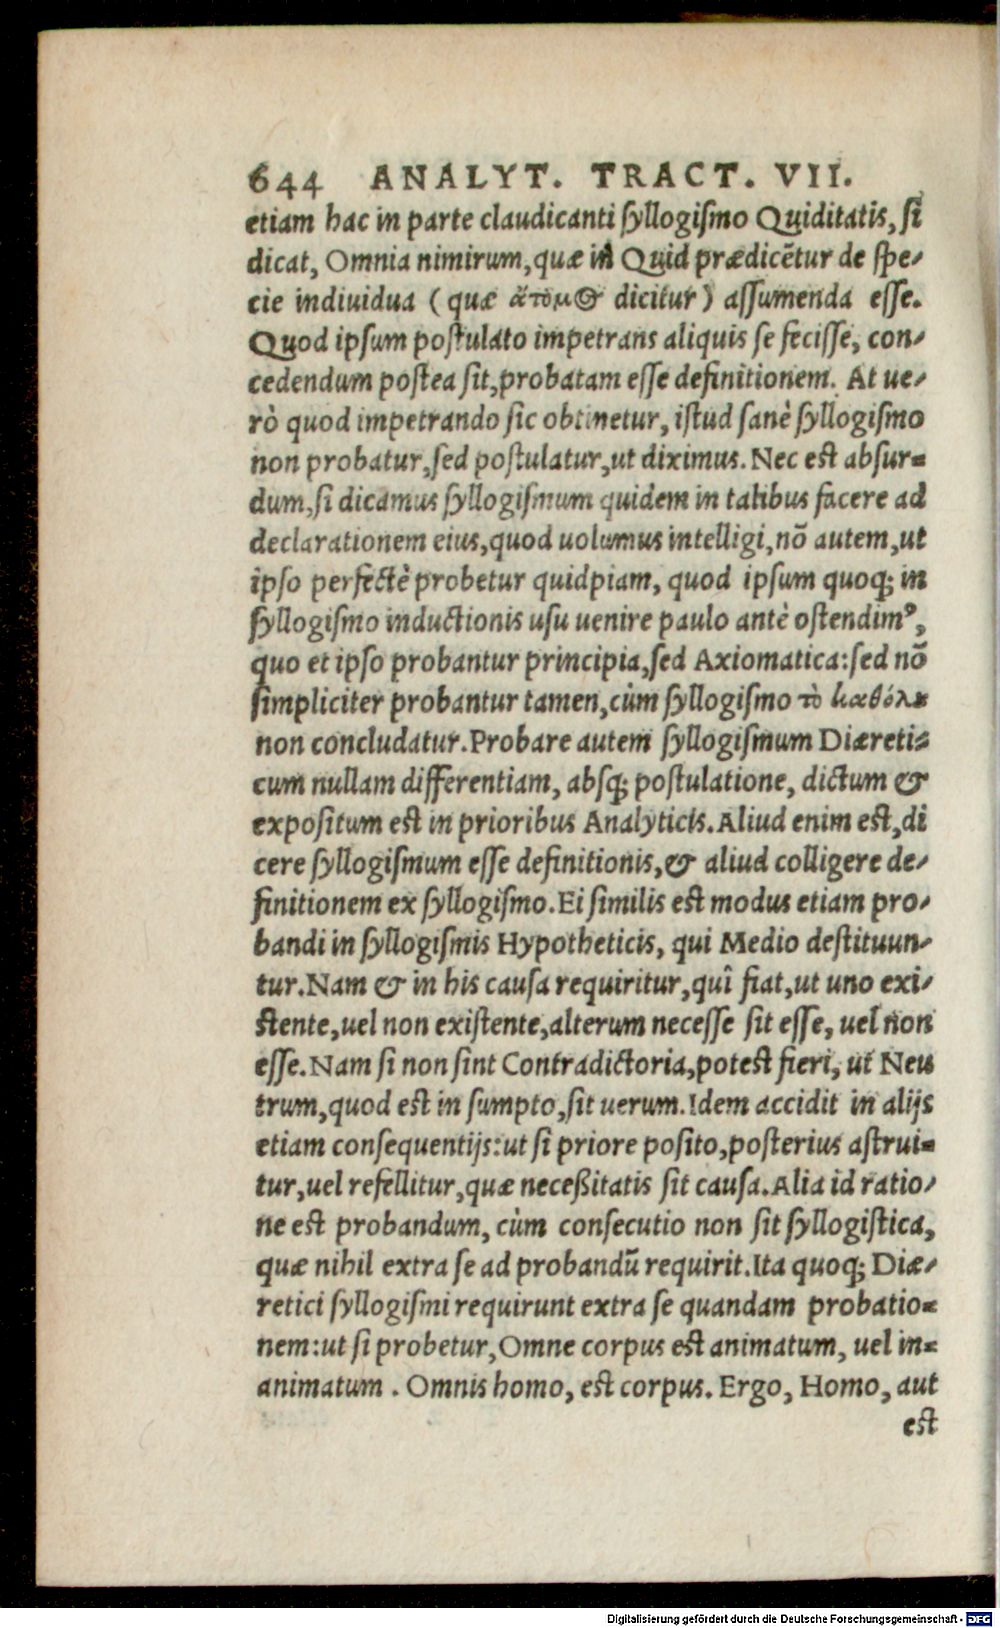 644 ANALYT. TRACT. VII.
etiam hac in parte claudicanti syllogismo Quiditatis, si
dicat, Omnia nimirum, quæ in Quid prædicẽtur de spe-
cie indiuidua (quæ ἄτομος dicitur) assumenda esse.
Quod ipsum postulato impetrans aliquis se fecisse, con-
cedendum postea sit, probatam esse definitionem. At ue-
rò quod impetrando sic obtinetur, istud sanè syllogismo
non probatur, sed postulatur, ut diximus. Nec est absur-
dum, si dicamus syllogismum quidem in talibus facere ad
declarationem eius, quod uolumus intelligi, nõ autem, ut
ipso perfectè probetur quidpiam, quod ipsum quoq; in
syllogismo inductionis usu uenire paulo antè ostendimꝰ,
quo et ipso probantur principia, sed Axiomatica: sed nõ
simpliciter probantur tamen, cùm syllogismo τὸ καθόλου
non concludatur. Probare autem syllogismum Diæreti-
cum nullam differentiam, absq; postulatione, dictum &
expositum est in prioribus Analyticis. Aliud enim est, di
cere syllogismum esse definitionis, & aliud colligere de-
finitionem ex syllogismo. Ei similis est modus etiam pro-
bandi in syllogismis Hypotheticis, qui Medio destituun-
tur. Nam & in his causa requiritur, quî fiat, ut uno exi-
stente, uel non existente, alterum necesse sit esse, uel non
esse. Nam si non sint Contradictoria, potest fieri, ut Neu
trum, quod est in sumpto, sit uerum. Idem accidit in alijs
etiam consequentijs: ut si priore posito, posterius astrui-
tur, uel refellitur, quæ neceßitatis sit causa. Alia id ratio-
ne est probandum, cùm consecutio non sit syllogistica,
quæ nihil extra se ad probandũ requirit. Ita quoq; Diæ-
retici syllogismi requirunt extra se quandam probatio-
nem: ut si probetur, Omne corpus est animatum, uel in-
animatum. Omnis homo, est corpus. Ergo, Homo, aut
est
Digitalisierung gefördert durch die Deutsche Forschungsgemeinschaft - DFG